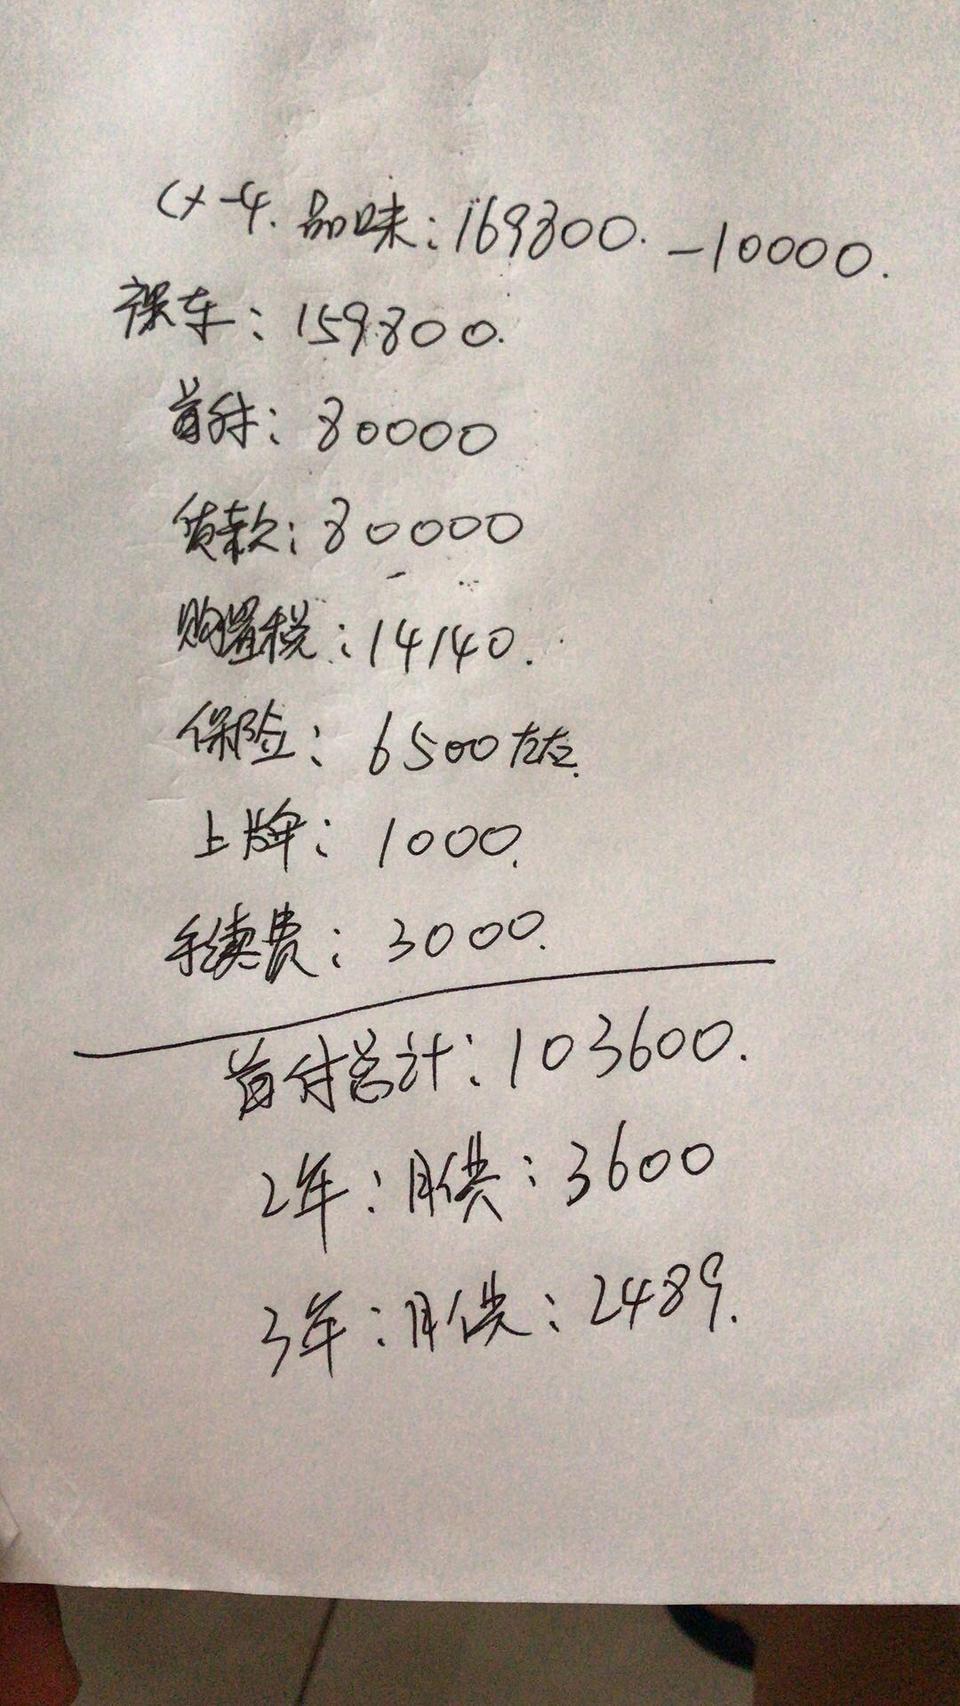 CX-4. 品味：169800. -10000.
裸车：159800.
首付：80000
贷款：80000
购置税：14140.
保险：6500左右.
上牌：1000.
手续费：3000.
首付总计：103600.
2年：月供：3600
3年：月供：2489.